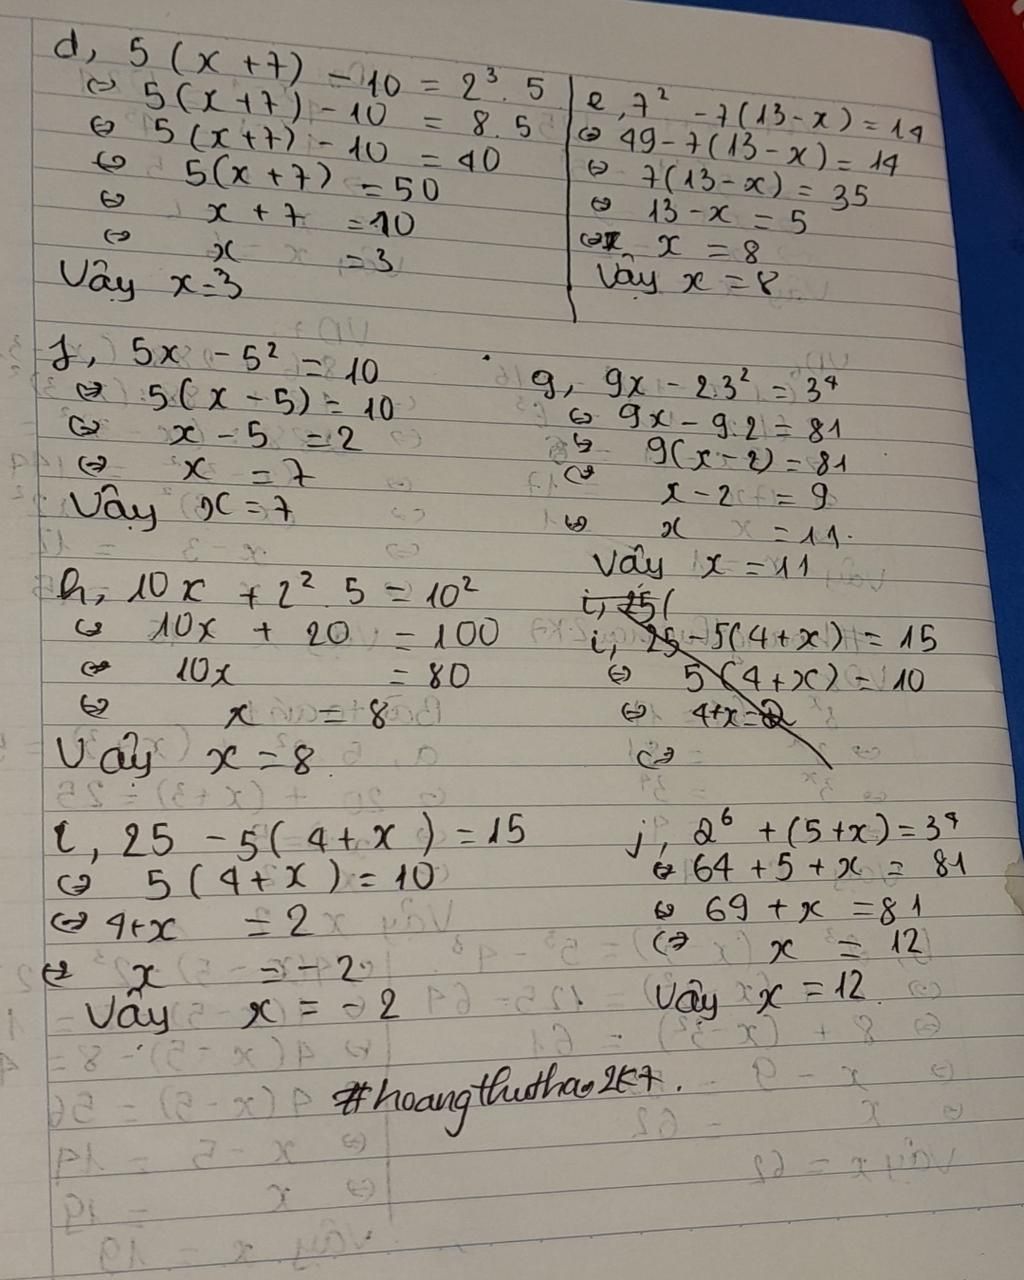 d, 5(x+7) - 10 = 2³.5
⇔ 5(x+7) - 10 = 8.5
⇔ 5(x+7) - 10 = 40
⇔ 5(x+7) = 50
⇔ x+7 = 10
⇔ x = 3
Vậy x=3
e, 7² - 7(13-x) = 14
⇔ 49-7(13-x) = 14
⇔ 7(13-x) = 35
⇔ 13-x = 5
⇔ x = 8
Vậy x = 8
f, 5x - 5² = 10
⇔ 5(x-5) = 10
⇔ x-5 = 2
⇔ x = 7
Vậy x = 7
g, 9x - 2.3² = 3⁴
⇔ 9x - 9.2 = 81
⇔ 9(x-2) = 81
⇔ x-2 = 9
⇔ x = 11.
Vậy x = 11
h, 10x + 2².5 = 10²
⇔ 10x + 20 = 100
⇔ 10x = 80
⇔ x = 8
Vậy x = 8
i, 25(
i, 25-5(4+x) = 15
⇔ 5(4+x) = 10
⇔ 4+x=2
⇔
i, 25 - 5(4+x) = 15
⇔ 5(4+x) = 10
⇔ 4+x = 2
⇔ x = -2
Vậy x = -2
j, 2⁶ + (5+x) = 3⁴
⇔ 64 + 5 + x = 81
⇔ 69 + x = 81
⇔ x = 12
Vậy x = 12.
#hoangthuthao2k7.